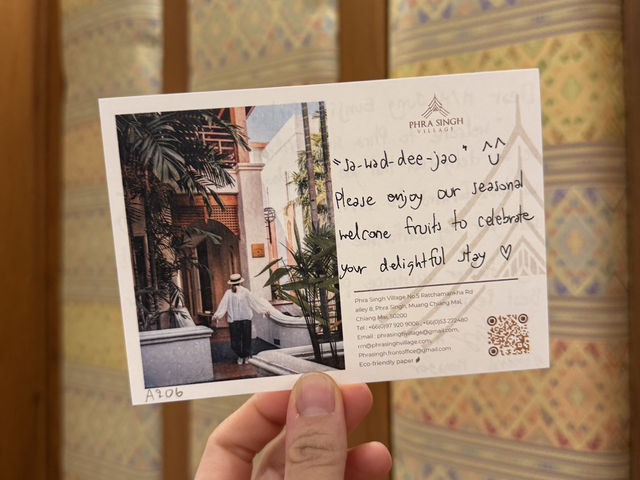 PHRA SINGH
VILLAGE
"sa-wad-dee-jao" ^^
Please enjoy our seasonal
welcome fruits to celebrate
your delightful stay ♡
Phra Singh Village No.5 Ratchamankha Rd
alley 8, Phra Singh, Muang Chiang Mai,
Chiang Mai, 50200
Tel : +66(0)97 920 9008 ; +66(0)53 272480
Email : phrasinghvillage@gmail.com,
rm@phrasinghvillage.com,
Phrasingh.frontoffice@gmail.com
Eco-friendly paper
A206